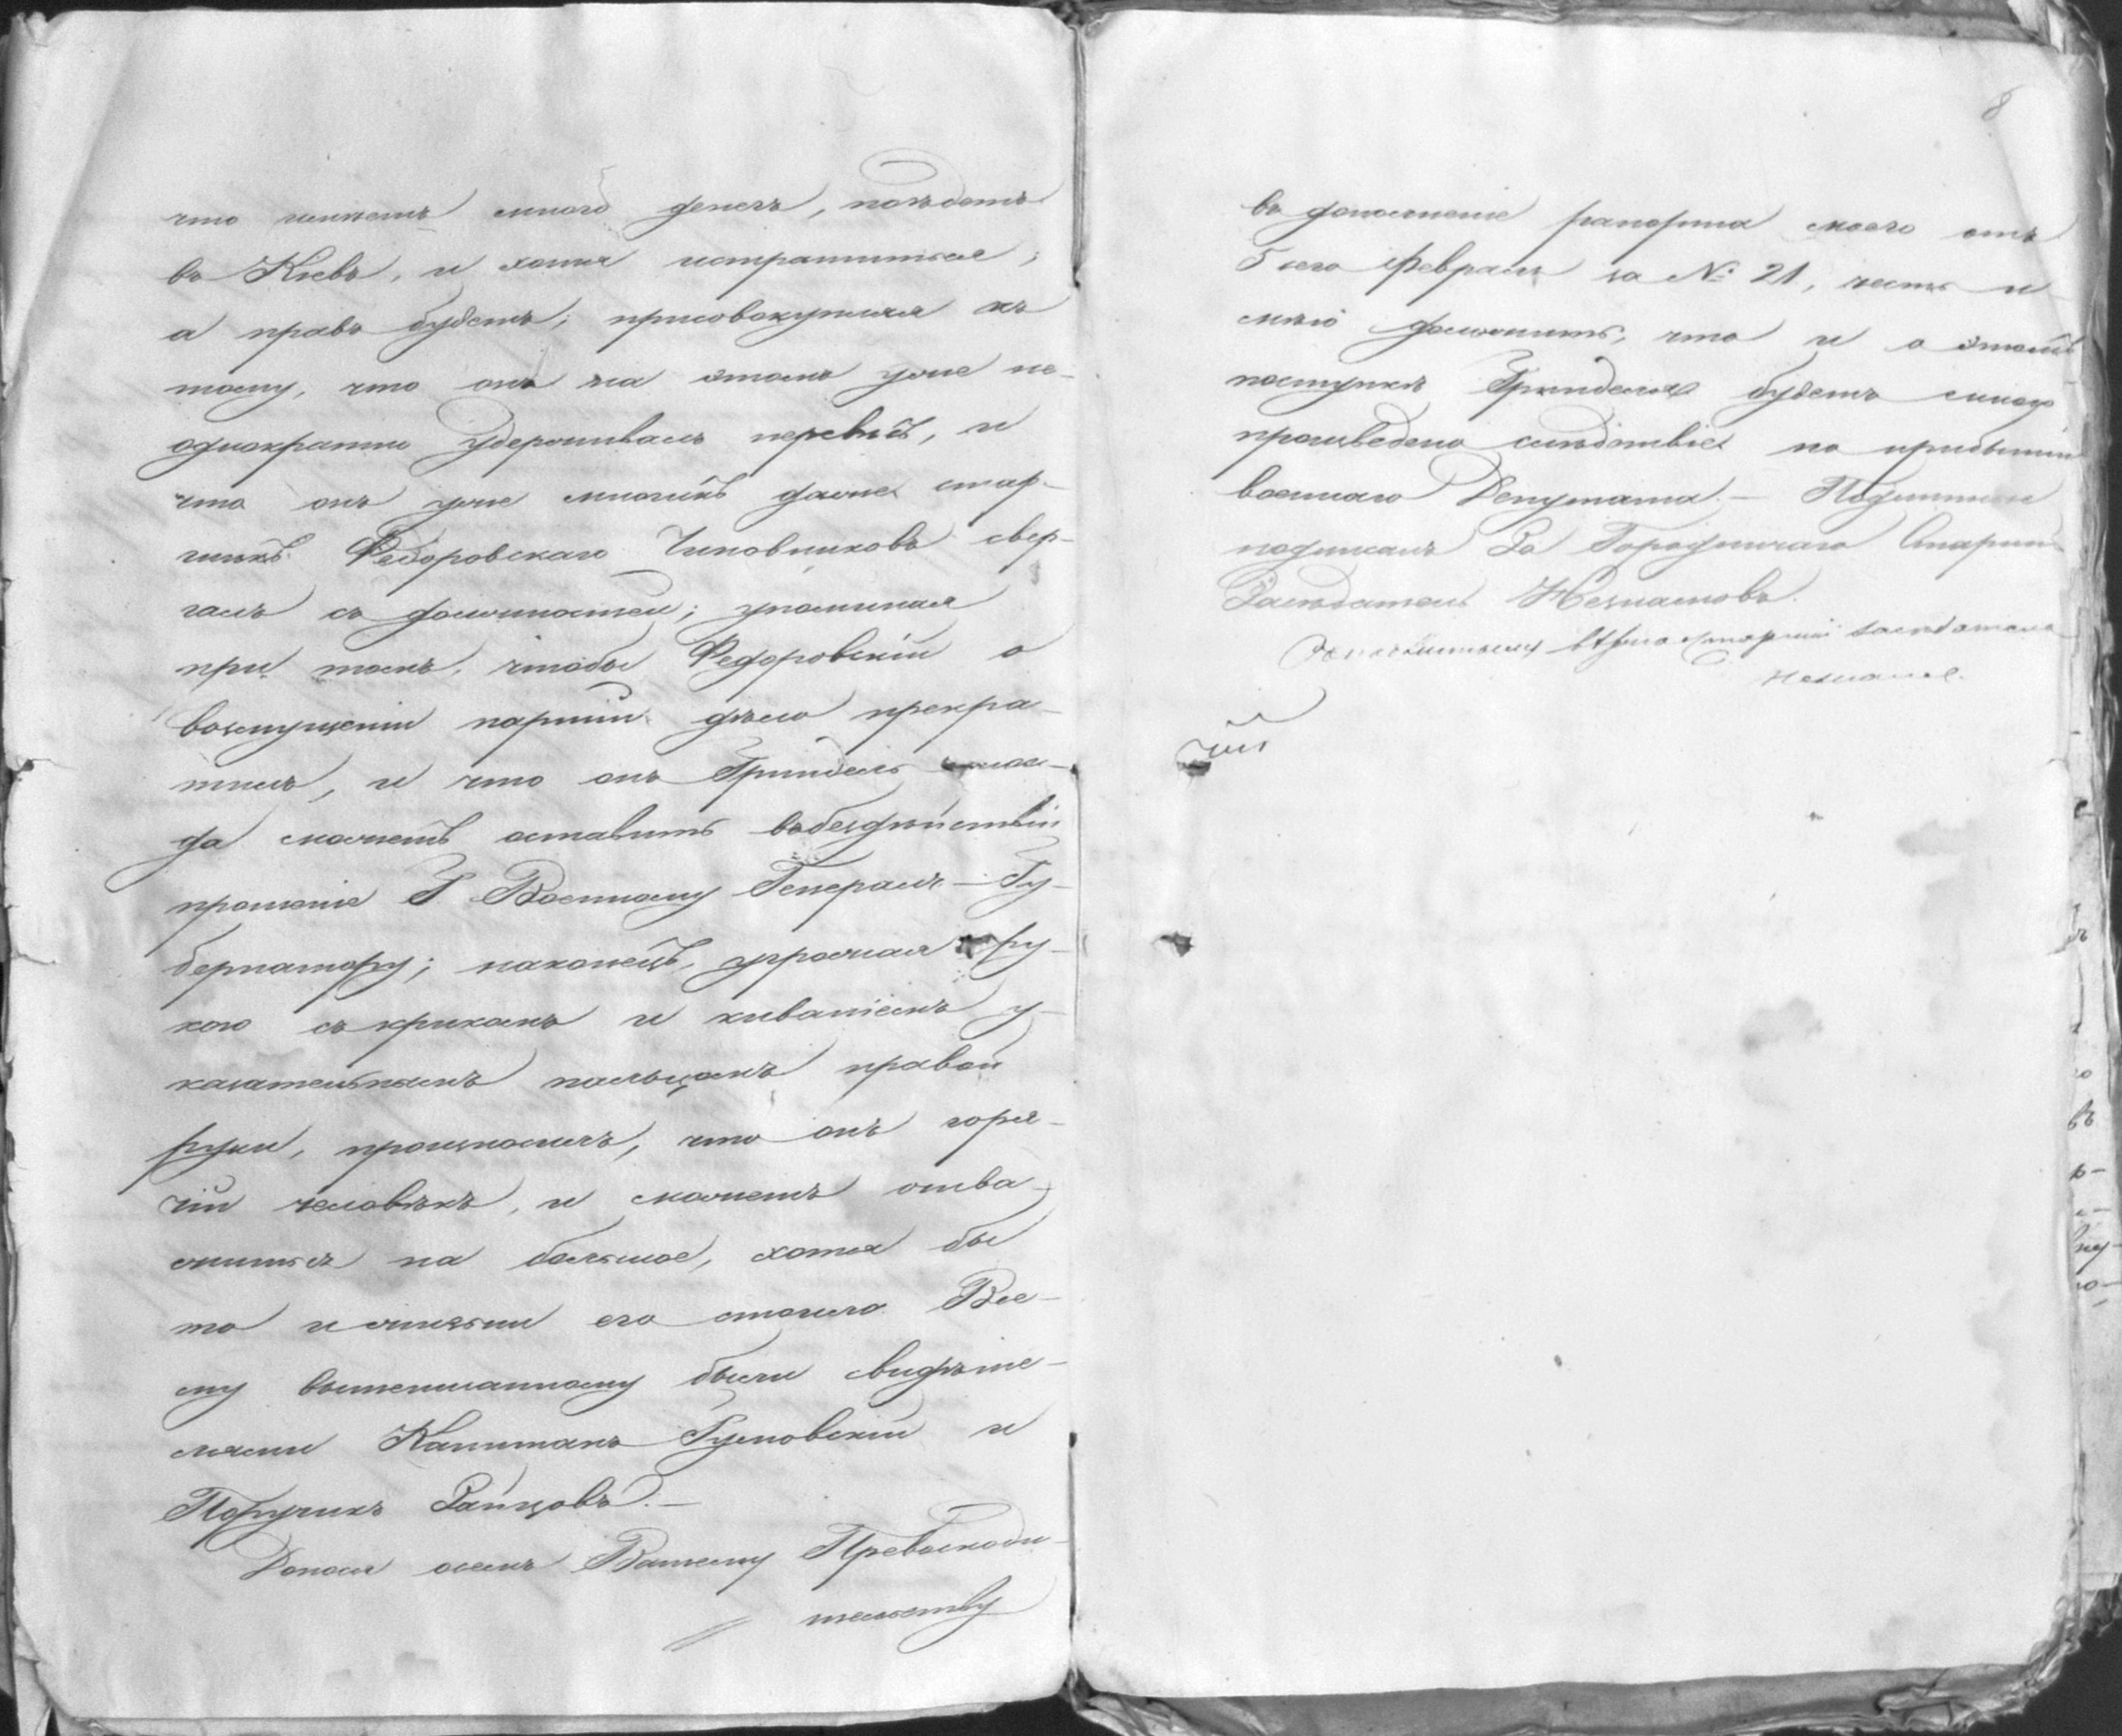 что имѣетъ много денегъ, поѣдетъ
въ Кіевъ, и хотя истратится,
а правъ будетъ; присовокупляя къ
тому, что онъ на этомъ уже не-
однократно удерживалъ перевѣсъ, и
что онъ уже многихъ даже стар-
шихъ Федоровскаго Чиновниковъ свер-
галъ съ должностей; упоминая
при томъ, чтобы Федоровскій о
возмущеніи партіи дѣло прекра-
тилъ, и что онъ Гриндель всег-
да можетъ оставить въ бездѣйствіи
прошеніе Г. Военному Генералъ-Гу-
бернатору; наконецъ, угрожая ру-
кою съ крикомъ и киваніемъ у-
казательнымъ пальцомъ правой
руки, произносилъ, что онъ горя-
чій человѣкъ, и можетъ отва-
житься на большое, хотя бы
то и жизни его стоило. Все-
му вышеписанному были свидѣте-
лями Капитанъ Гумовскій и
Поручикъ Зайцовъ.—
Донося о семъ Вашему Превосходи-
тельству
8
въ дополненіе рапорта моего отъ
5 сего Февраля за № 21, честь и-
мѣю доложить, что и о этомъ
поступкѣ Гринделя будетъ мною
произведено слѣдствіе по прибытіи
военнаго Депутата.— Подлинный
подписалъ За Городничаго Старшій
Засѣдатель Незнамовъ.
засѣдатель